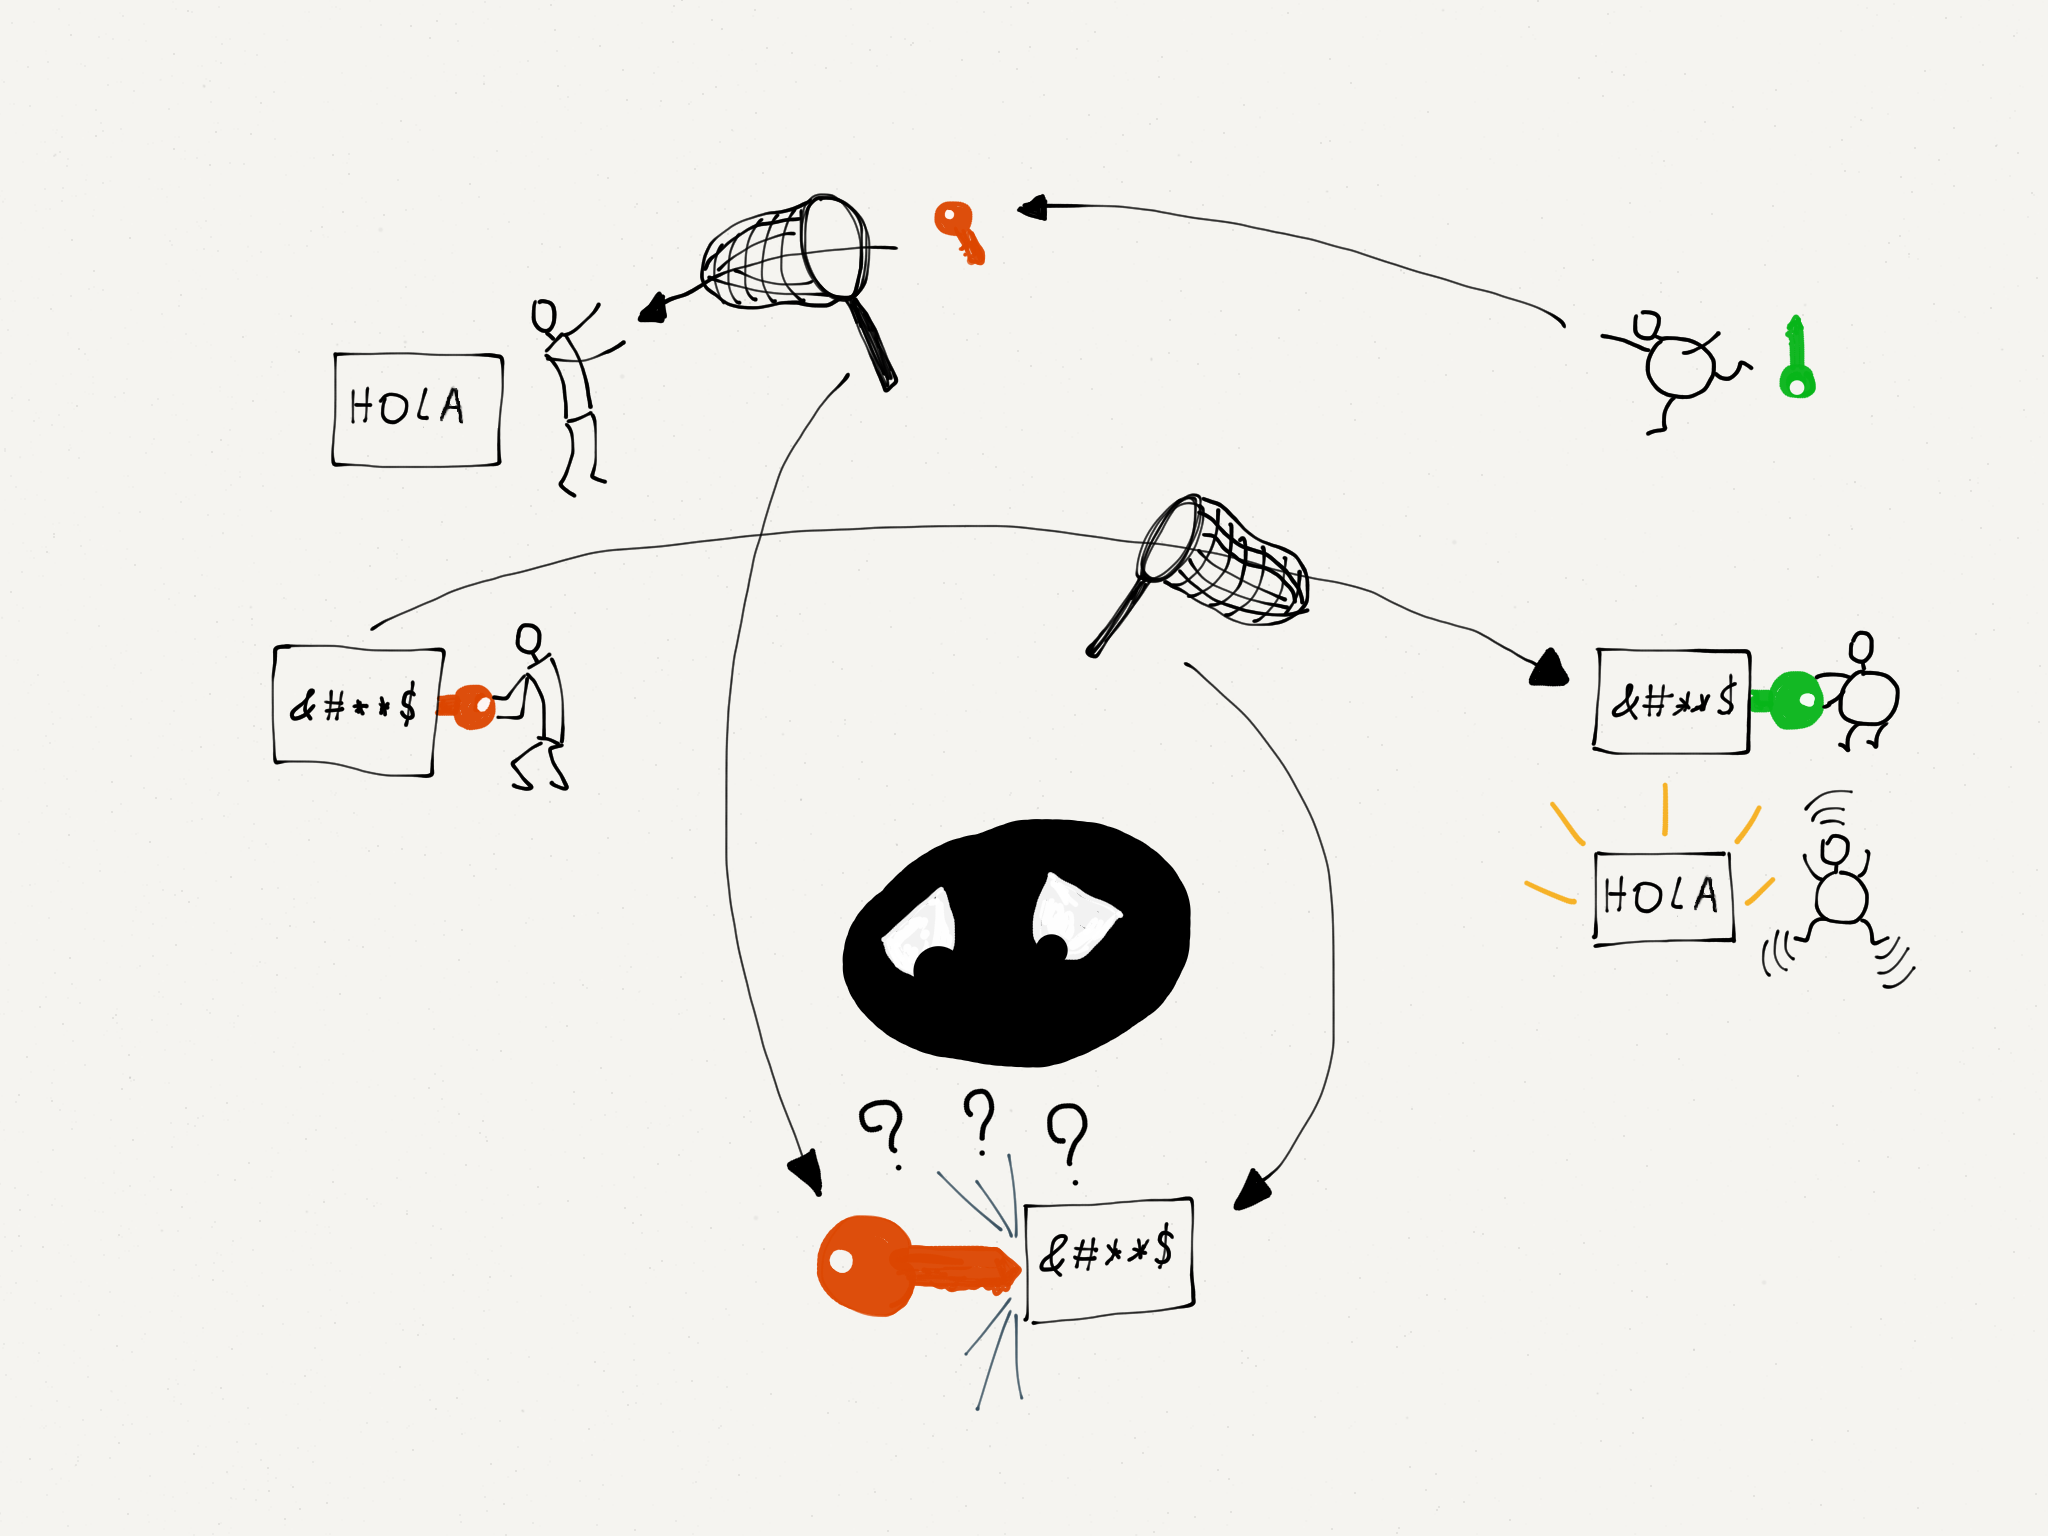 HOLA
&#**$
&#**$
HOLA
? ? ?
&#**$